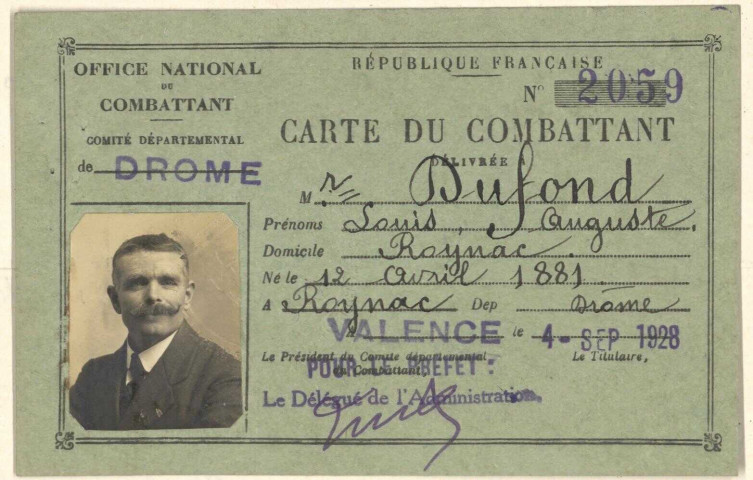 OFFICE NATIONAL
DU
COMBATTANT
COMITÉ DÉPARTEMENTAL
de DROME
RÉPUBLIQUE FRANÇAISE
N° 2059
CARTE DU COMBATTANT
DÉLIVRÉE A
M r Dufond
Prénoms Louis, Auguste,
Domicile Roynac.
Né le 12 Avril 1881.
A Roynac Dep Drôme
A VALENCE le 4 - SEP 1928
Le Président du Comité départemental
du Combattant,
Le Titulaire,
POUR LE PREFET :
Le Délégué de l'Administration,